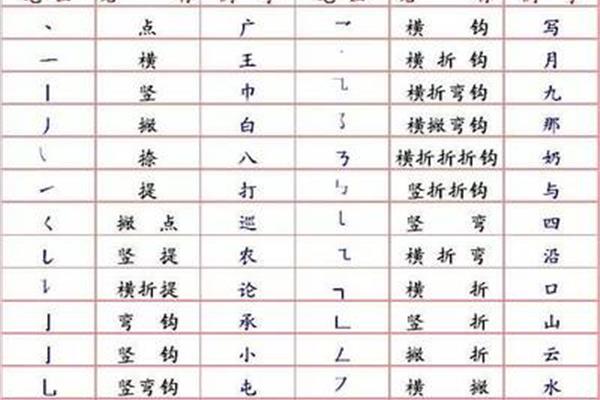 丶 点 广 乛 横钩 写
一 横 王 横折钩 月
丨 竖 巾 ㇈ 横折弯钩 九
丿 撇 白 ㇌ 横撇弯钩 那
㇏ 捺 八 ㇡ 横折折折钩 奶
㇀ 提 打 ㇉ 竖折折钩 与
㇛ 撇点 巡 ㇄ 竖弯 四
㇙ 竖提 农 ㇍ 横折弯 沿
㇊ 横折提 论 ㇕ 横折 口
㇁ 弯钩 承 ㇗ 竖折 山
亅 竖钩 小 ㇜ 撇折 云
乚 竖弯钩 屯 ㇇ 横撇 水